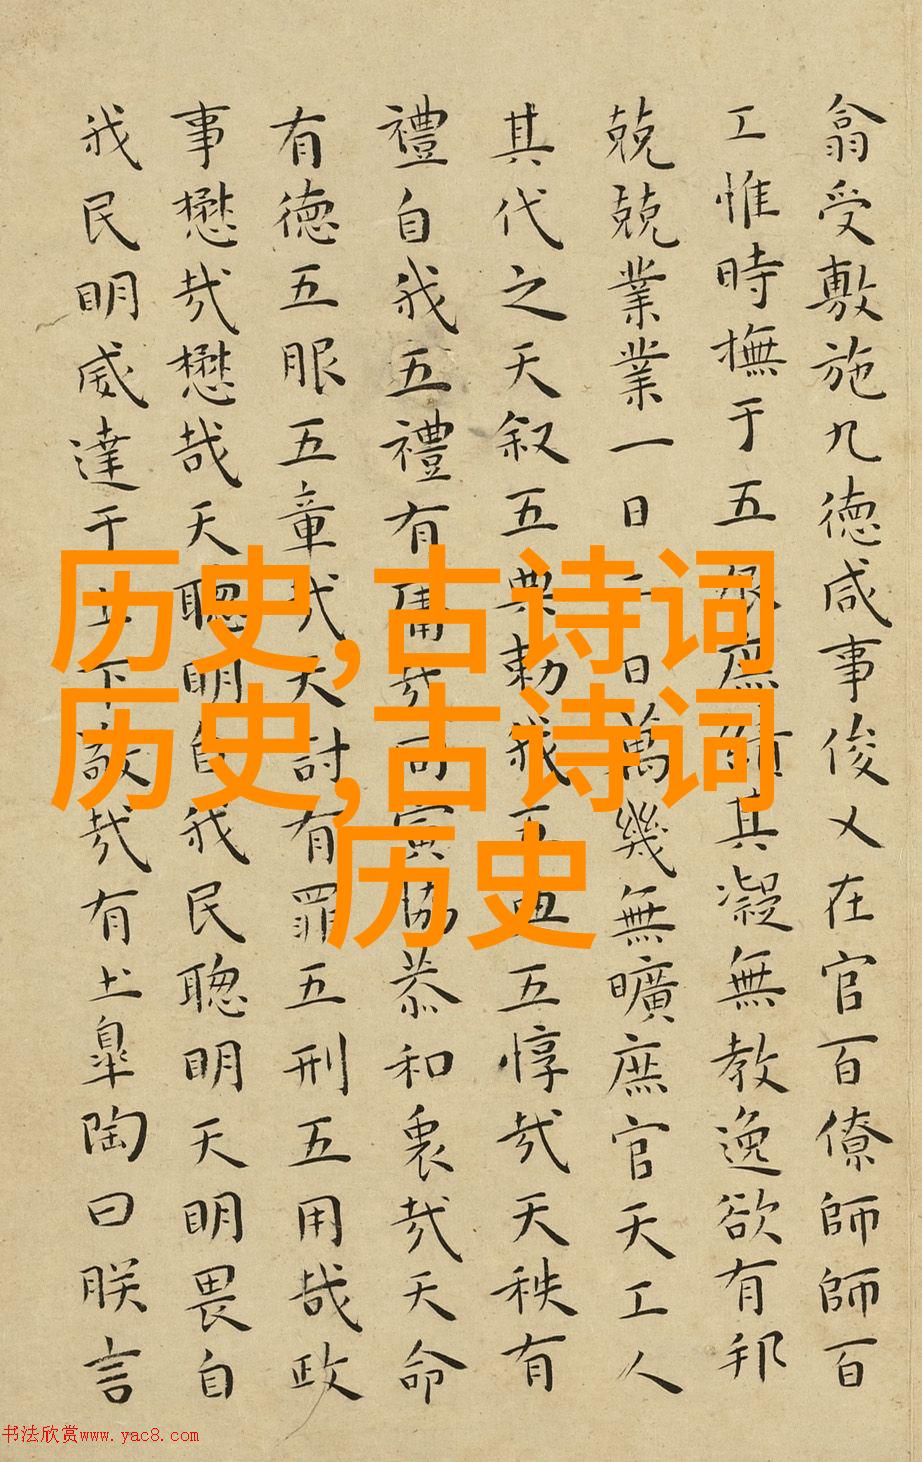 翕受敷施九德咸事俊乂在官百僚師師百
工惟時撫于五辰庶績其凝無教逸欲有邦
兢兢業業一日二日萬幾無曠庶官天工人
其代之天叙五典勅我五典五惇哉天秩有
禮自我五禮有庸哉同寅協恭和衷哉天命
有德五服五章哉天討有罪五刑五用哉政
事懋哉懋哉天聰明自我民聰明天明畏自
我民明威達于上下敬哉有土皐陶曰朕言
历史,古诗词
历史,古诗词
历史
书法欣赏www.yac8.com